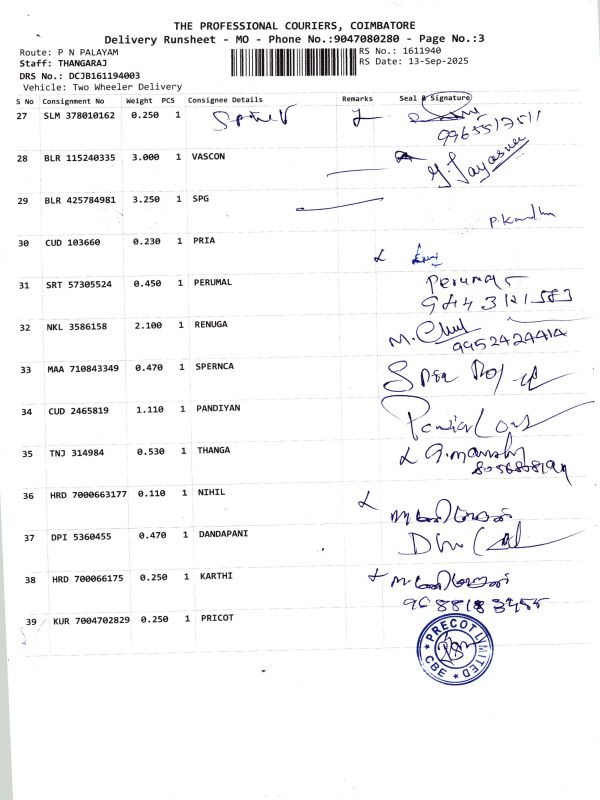 THE PROFESSIONAL COURIERS, COIMBATORE
Delivery Runsheet - MO - Phone No.:9047080280 - Page No.:3
Route: P N PALAYAM
RS No.: 1611940
Staff: THANGARAJ
RS Date: 13-Sep-2025
DRS No.: DCJB161194003
Vehicle: Two Wheeler Delivery
S No Consignment No Weight PCS Consignee Details Remarks Seal & Signature
27 SLM 378010162 0.250 1
28 BLR 115240335 3.000 1 VASCON
29 BLR 425784981 3.250 1 SPG
30 CUD 103660 0.230 1 PRIA
31 SRT 57305524 0.450 1 PERUMAL Perumal
32 NKL 3586158 2.100 1 RENUGA
9952424414
33 MAA 710843349 0.470 1 SPERNCA
34 CUD 2465819 1.110 1 PANDIYAN
35 TNJ 314984 0.530 1 THANGA
36 HRD 7000663177 0.110 1 NIHIL
37 DPI 5360455 0.470 1 DANDAPANI
38 HRD 700066175 0.250 1 KARTHI
39 KUR 7004702829 0.250 1 PRICOT
PRECOT LIMITED
CBE